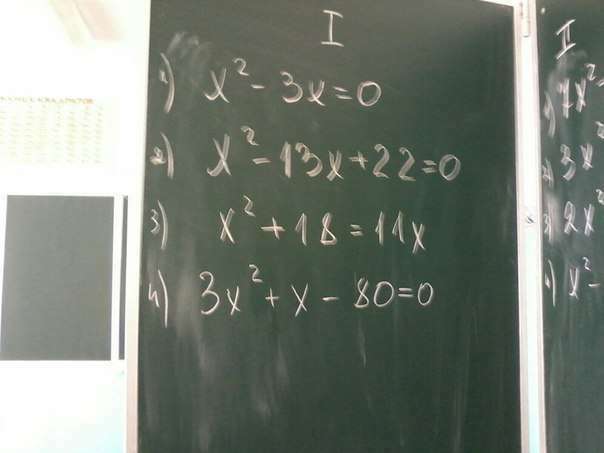 I
1) x² - 3x = 0
2) x² - 13x + 22 = 0
3) x² + 18 = 11x
4) 3x² + x - 80 = 0
II
1) 7x²
2) 3x
3) 2x²
4) x² -